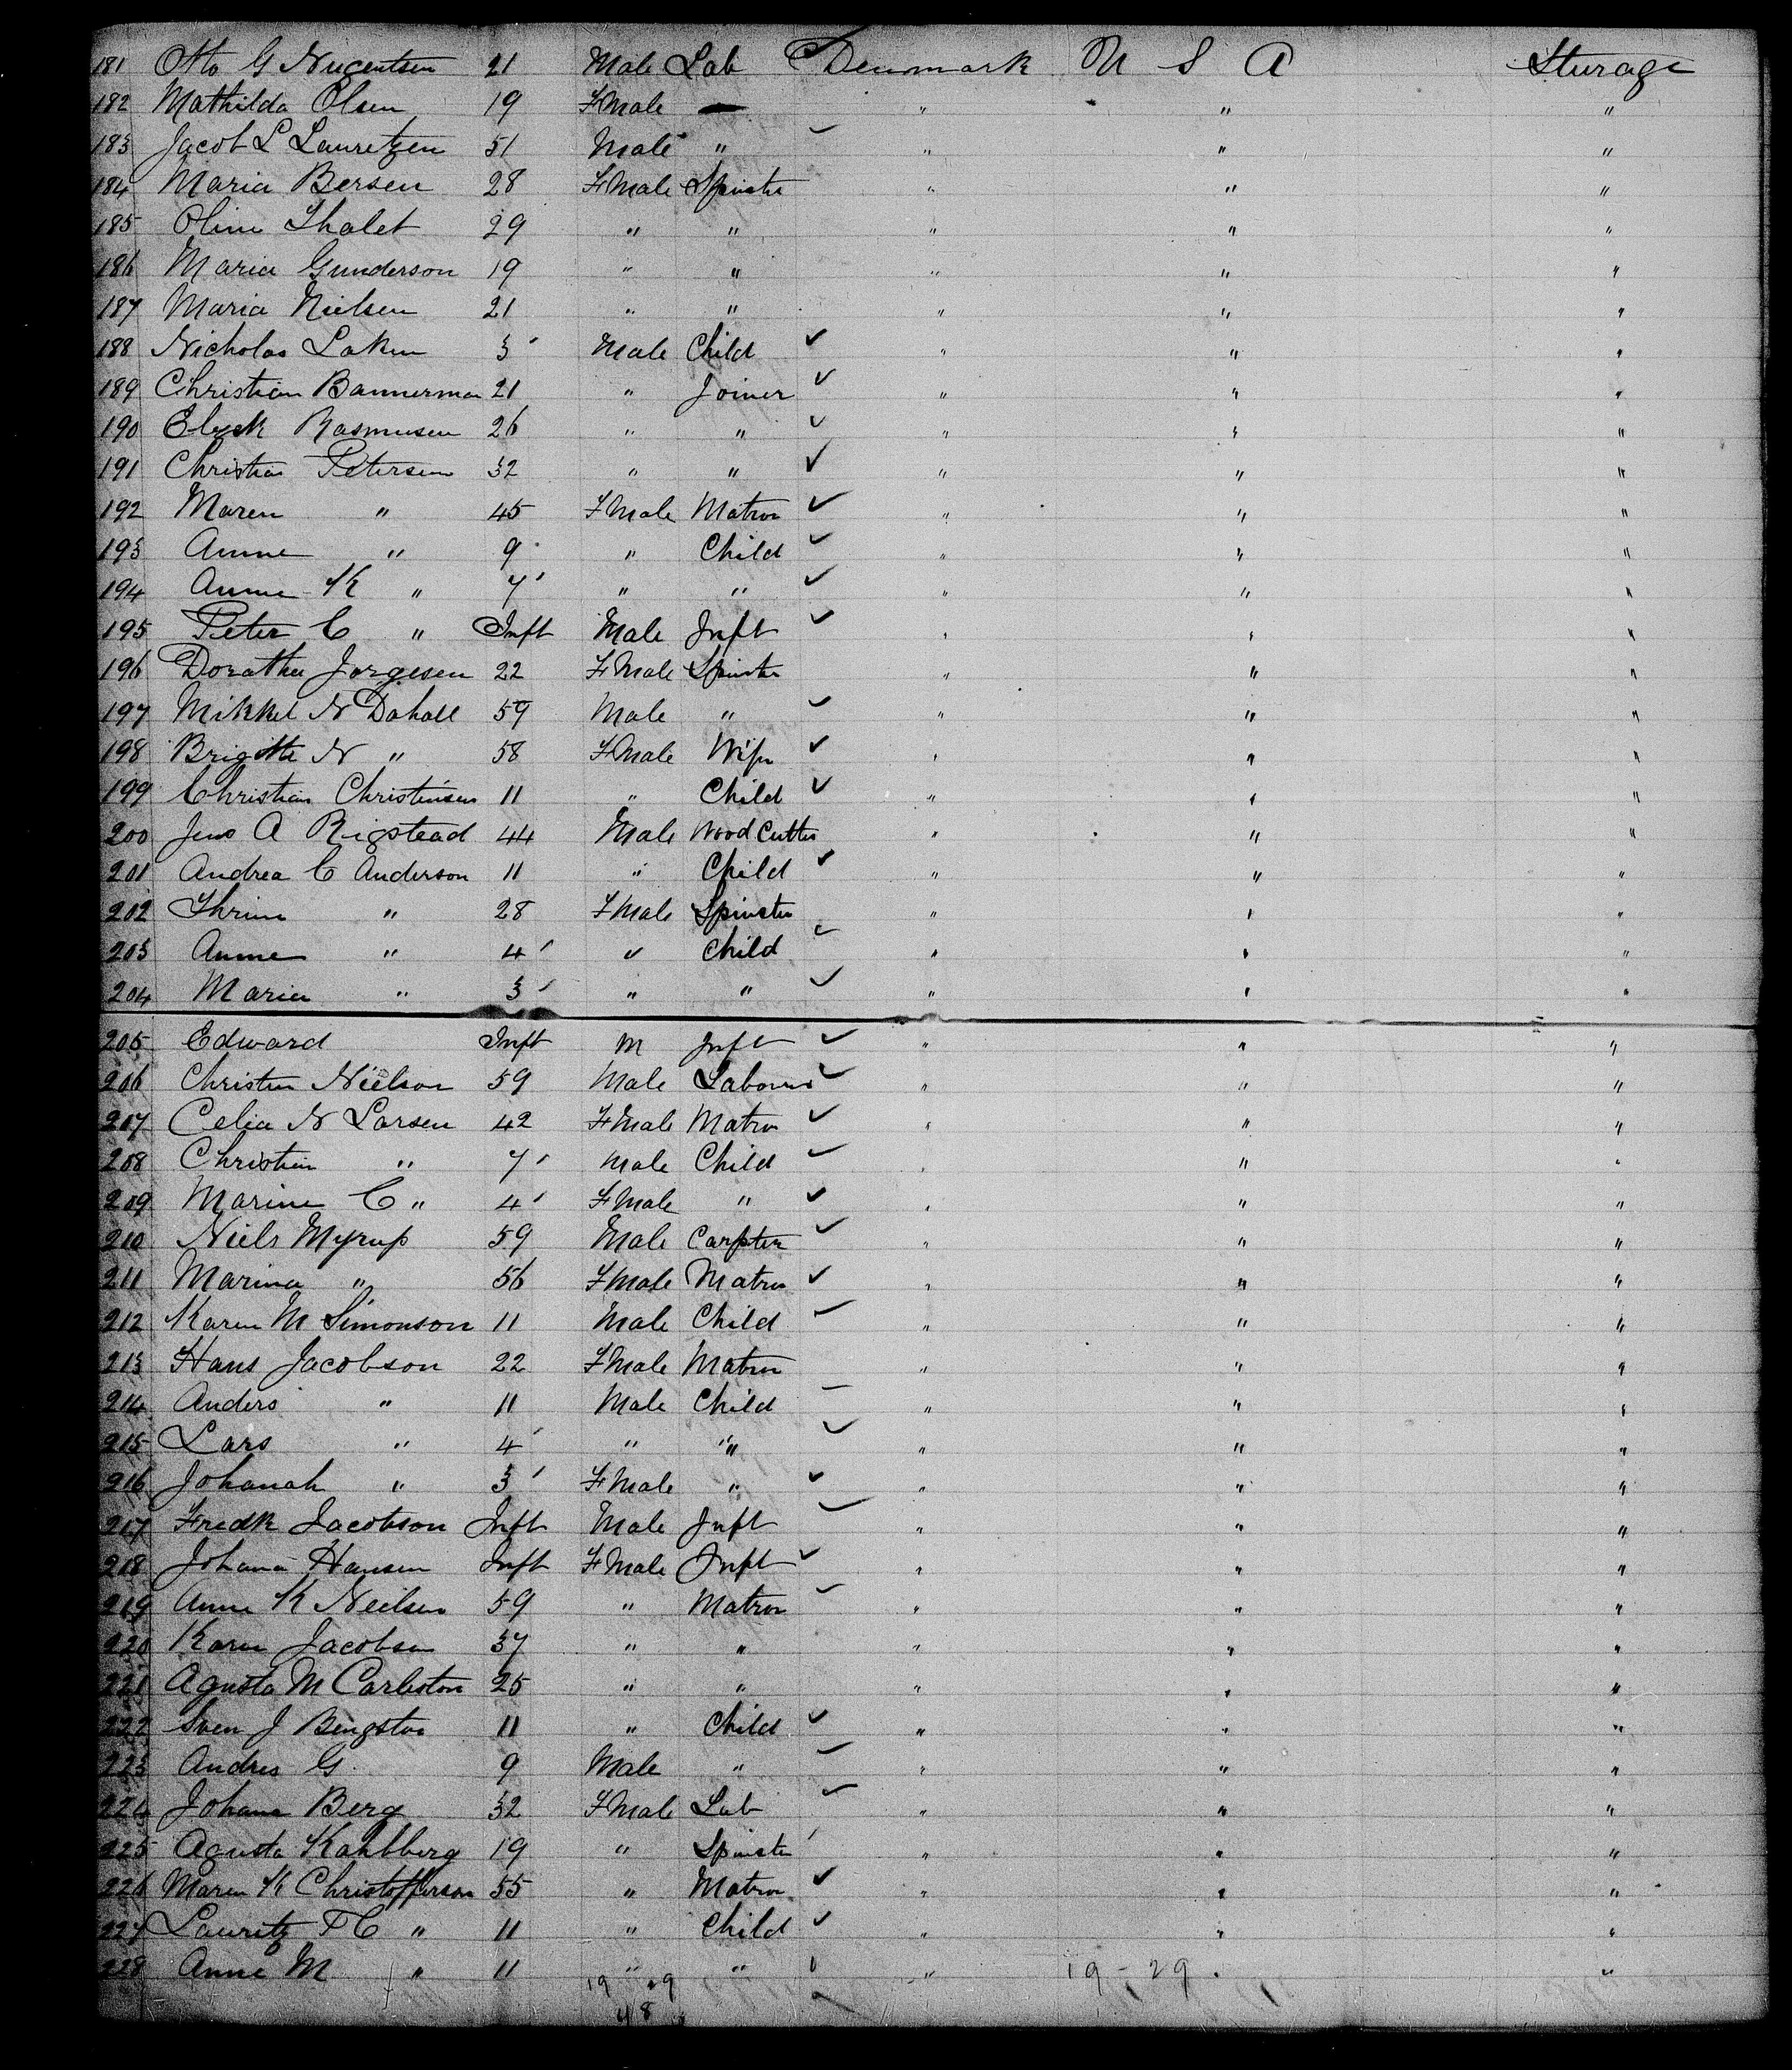 181 Otto G Nucentsen 21 Male Lab Denmark U S A Sturage
182 Mathilda Olsen 19 FMale — " " "
183 Jacob L Lauretzen 51 Male " " " "
184 Maria Bersen 28 FMale Spinster " " "
185 Oline Thalet 29 " " " " "
186 Maria Gunderson 19 " " " " "
187 Maria Nielsen 21 " " " " "
188 Nicholas Laken 3 Male Child " " "
189 Christian Bannerman 21 " Joiner " " "
190 Elyck Rasmusen 26 " " " " "
191 Christian Petersen 32 " " " " "
192 Maren " 45 FMale Matron " " "
193 Anne " 9 " Child " " "
194 Anne K " 7 " " " " "
195 Peter C " Inft Male Inft " " "
196 Dorathea Jorgesen 22 FMale Spinster " " "
197 Mikkel N Dahall 59 Male " " " "
198 Brigitte N " 58 FMale Wife " " "
199 Christian Christensen 11 " Child " " "
200 Jens A Rigstead 44 Male Wood Cutter " " "
201 Andrea C Anderson 11 " Child " " "
202 Thrine " 28 FMale Spinster " " "
203 Anne " 4 " Child " " "
204 Maria " 3 " " " " "
205 Edward Inft M Inft " " "
206 Christen Nielson 59 Male Labourer " " "
207 Celia N Larsen 42 FMale Matron " " "
208 Christian " 7 Male Child " " "
209 Marine C " 4 FMale " " " "
210 Niels Myrup 59 Male Carpter " " "
211 Marina " 56 FMale Matron " " "
212 Karen M Simonson 11 Male Child " " "
213 Hans Jacobson 22 FMale Matron " " "
214 Anders " 11 Male Child " " "
215 Lars " 4 " " " " "
216 Johanah " 3 FMale " " " "
217 Fredk Jacobson Inft Male Inft " " "
218 Johana Hansen Inft FMale Inft " " "
219 Anne K Neilsen 59 " Matron " " "
220 Karen Jacobsen 37 " " " " "
221 Agusta M Carlston 25 " " " " "
222 Sven J Bengston 11 " Child " " "
223 Andres G 9 Male " " " "
224 Johana Berg 32 FMale Lab " " "
225 Agusta Kahlberg 19 " Spinster " " "
226 Maren K Christofferson 55 " Matron " " "
227 Lauritz F C " 11 " Child " " "
228 Anne M " 11 " " " 19 - 29 "
19 29
48